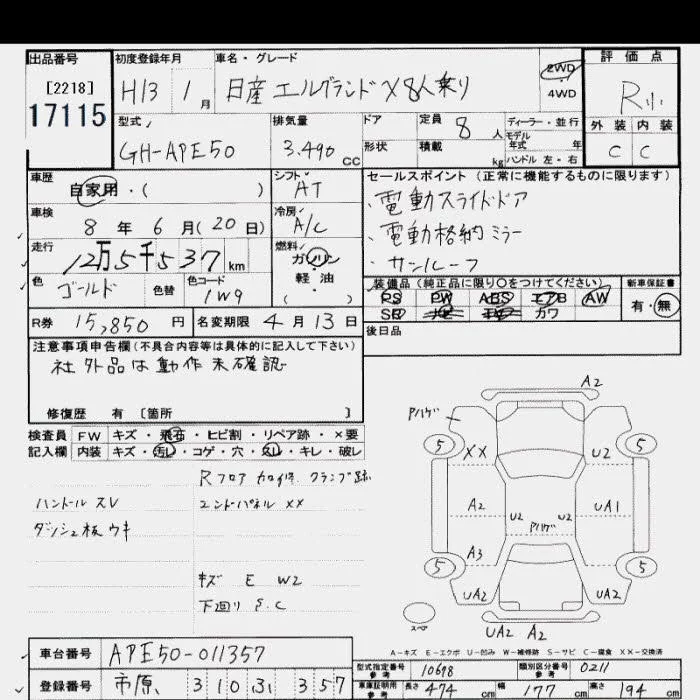 出品番号 初度登録年月 車名・グレード 評価点
[2218] H13 1月 日産 エルグランド X 8人乗り 2WD・4WD R小
17115
型式 排気量 ドア 定員 ディーラー・並行 外装 内装
GH-APE50 3.490 CC 形状 積載 8人 kg モデル年式 年 ハンドル 左・右 C C
車歴 自家用・( ) シフト AT セールスポイント (正常に機能するものに限ります)
車検 8年 6月(20日) 冷房 A/C
・電動スライドドア
・電動格納ミラー
・サンルーフ
走行 12万5千537km 燃料 ガソリン 軽・油 ( )
色 ゴールド 色替 色コード 1W9
装備品 (純正品に限り〇をつけてください) 新車保証書
PS PW ABS エアB AW 有・無
SR カワ
R券 15,850円 名変期限 4月13日
後日品
注意事項申告欄 (不具合内容等は具体的に記入して下さい)
社外品は動作未確認
修復歴 有 [箇所 ]
検査員 FW キズ・飛石・ヒビ割・リペア跡・×要
記入欄 内装 キズ・汚レ・コゲ・穴・スレ・キレ・破レ
Rフロア カロイ修. クランプ跡
ハンドル スレ エンドパネル XX
ダッシュ板ウキ
キズ E W2
下回り S.C
A2
Pハゲ
5 XX U2 5
A2 U2 Pハゲ U2 UA1
A3
5 UA2 UA2 5
スペア UA2 A2
A−キズ E−エクボ U−凹み W−補修跡 S−サビ C−腐食 XX−交換済
車台番号 APE50-011357
型式指定番号 参考 10698 類別区分番号 参考 0211
登録番号 市原 310 31 357
車庫証明用 参考 長さ 474 cm 幅 177 cm 高さ 194 cm